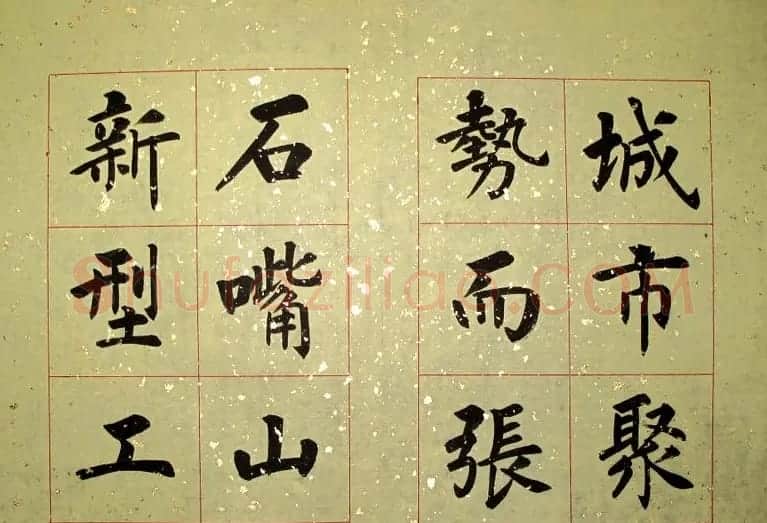 城市聚
勢而張
石嘴山
新型工
Shufaziliao.COM